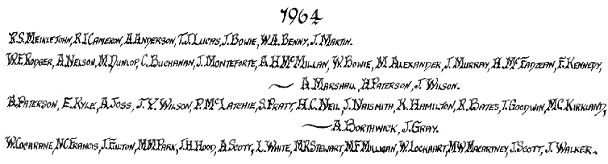 1964
R.S. Meiklejohn, R.I. Cameron, A. Anderson, T.J. Lucas, J. Bowie, W.A. Benny, J. Martin.
W.F. Rodger, A. Nelson, M. Dunlop, C. Buchanan, J. Monteforte, A.H. McMillan, W. Bowie, M. Alexander, J. Murray, H. McFadzean, F. Kennedy,
A. Marshall, H. Paterson, J. Wilson.
A. Paterson, E. Kyle, A. Joss, J.Y. Wilson, P. McLatchie, S. Pratt, H.C. Neil, J. Naismith, K. Hamilton, R. Bates, J. Goodwin, M.C. Kirkland,
A. Borthwick, J. Gray.
W. Cochrane, N.C. Francis, J. Fulton, M.M. Park, J.H. Hood, A. Scott, L. White, M.R. Stewart, M.F. Milligan, W. Lockhart, M.W. Macartney, J. Scott, J. Walker.